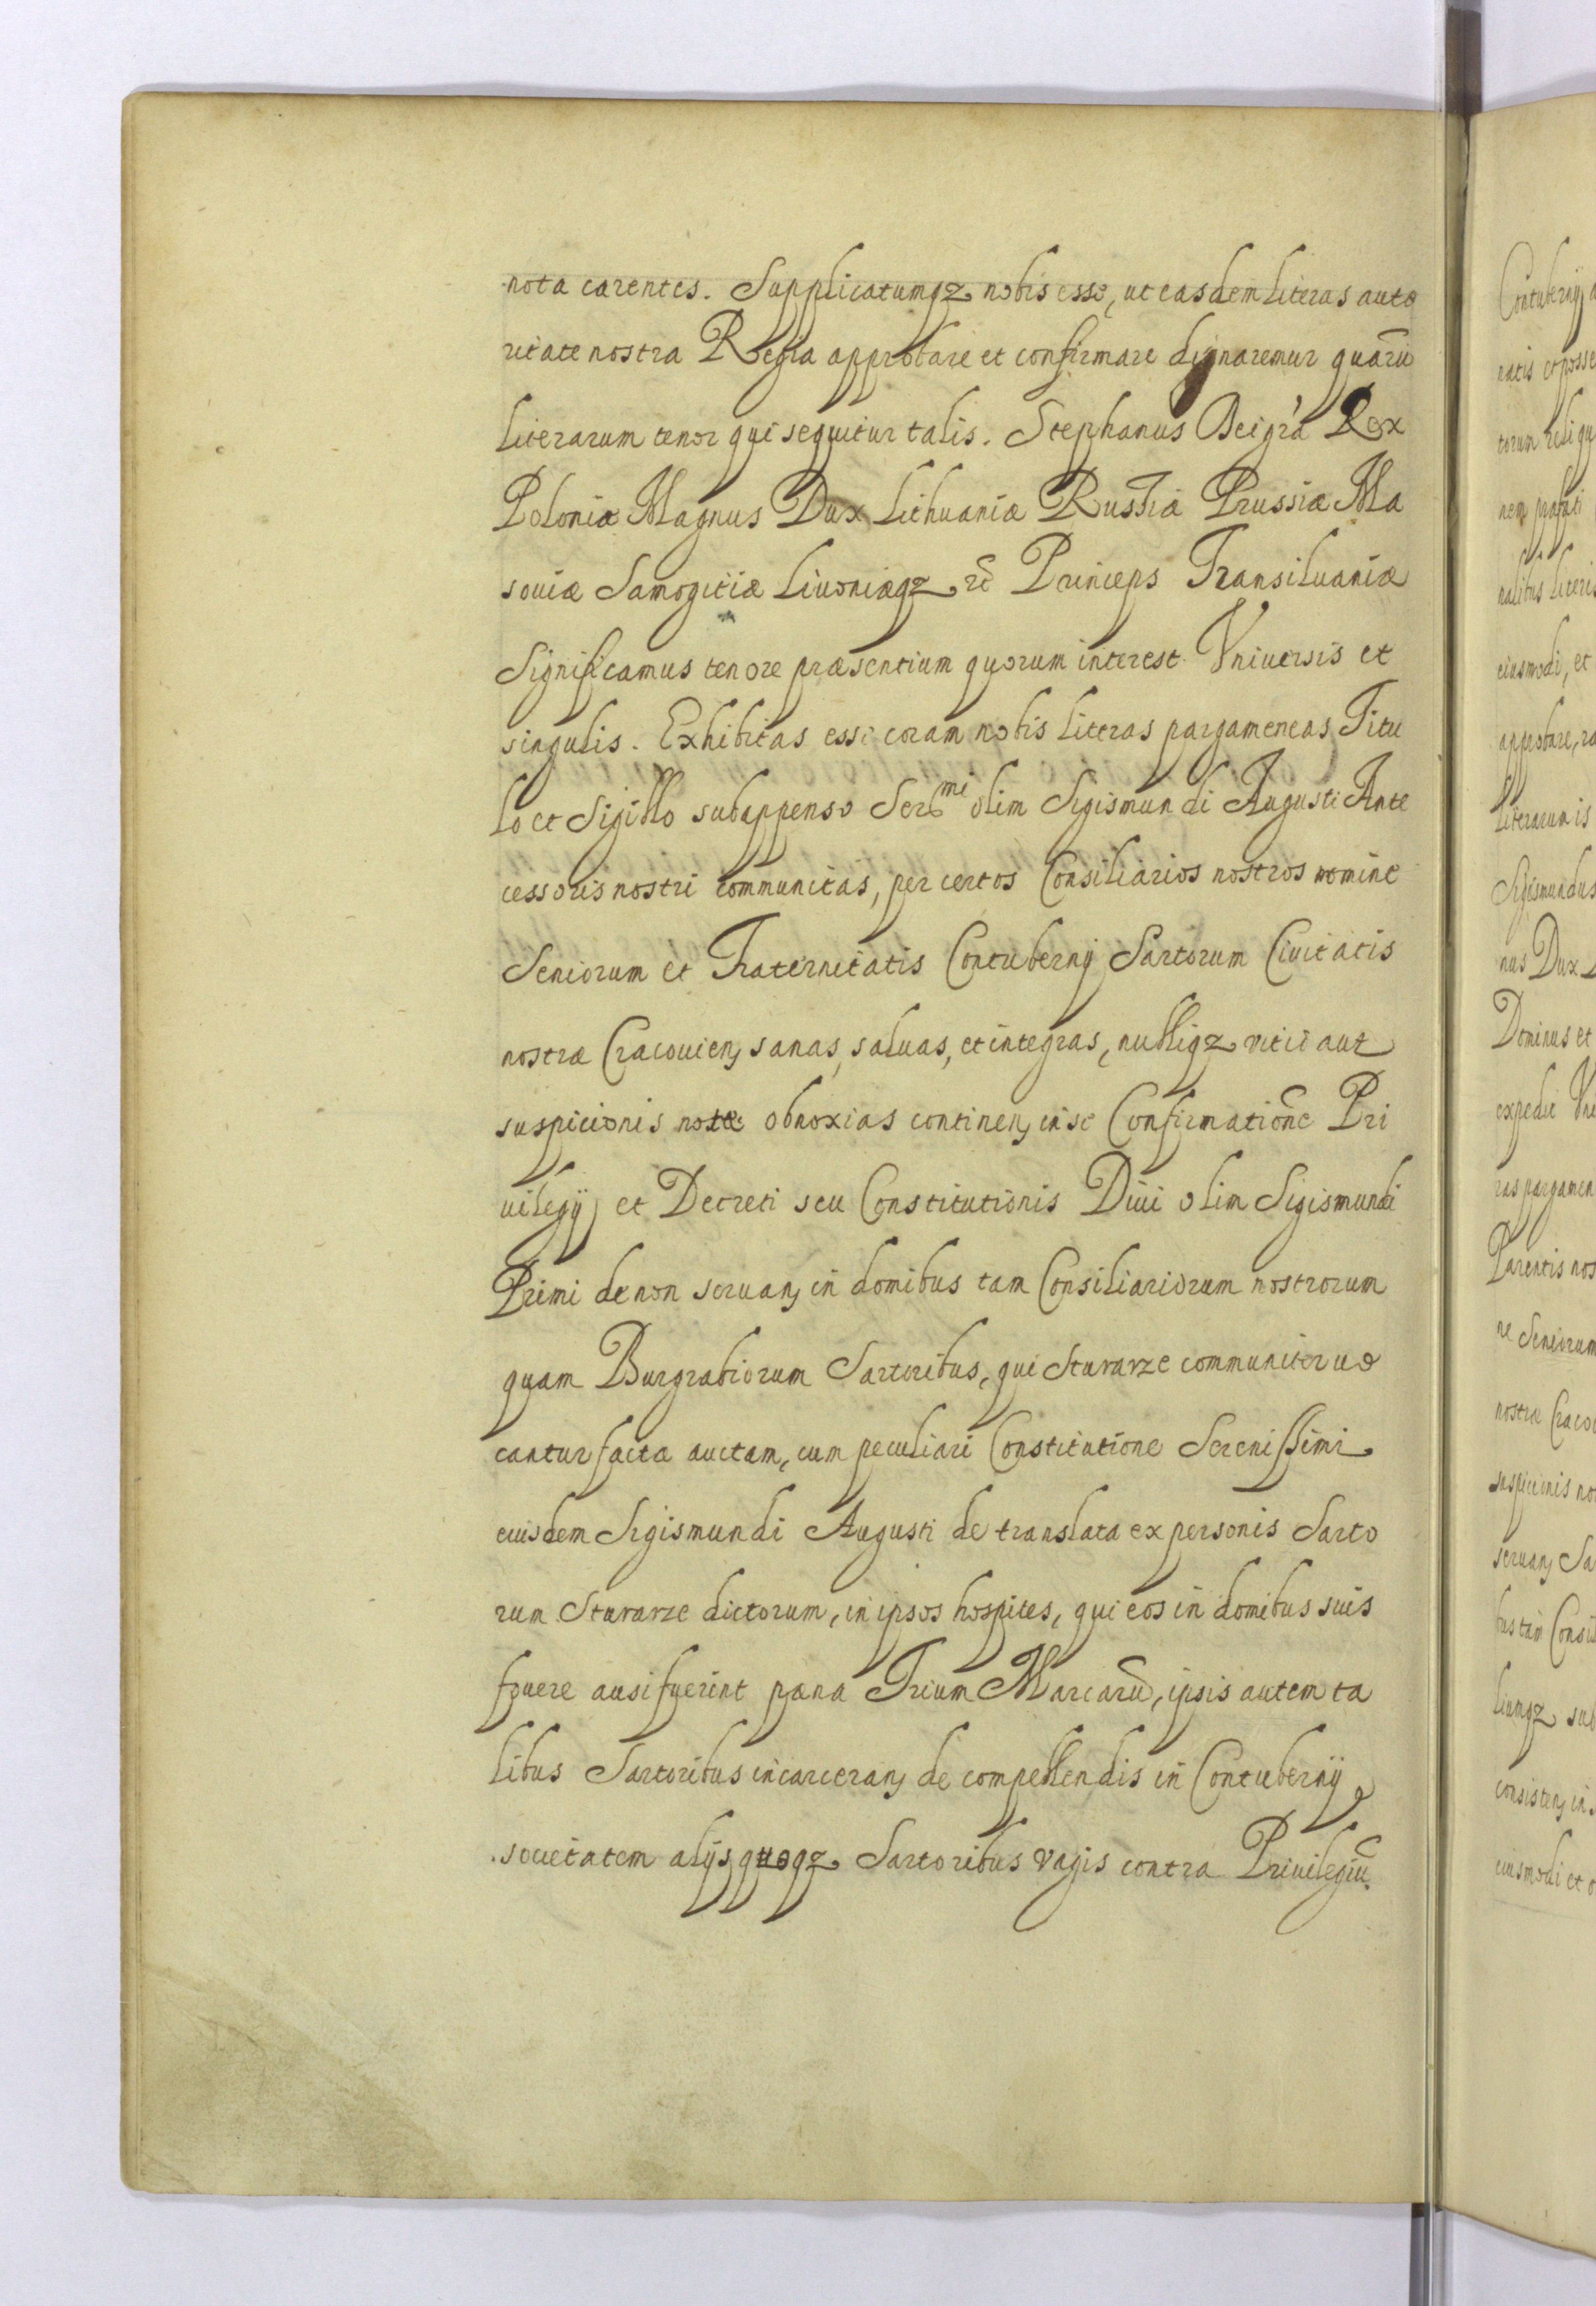 nota carentes. Supplicatumqz nobis esse, ut easdem literas auto
ritate nostra Regia approbare et confirmare dignaremur quarū
literarum tenor qui sequitur talis. Stephanus Dei grã Rex
Poloniæ Magnus Dux Lithuaniæ Russiæ Prussiæ Ma
souiæ Samogitiæ Liuoniæqz etc̃ Princeps Transiluaniæ
Significamus tenore præsentium quorum interest Vniuersis et
singulis. Exhibitas esse coram nobis literas pargameneas Titu
lo et Sigillo subappenso Sermi olim Sigismundi Augusti Ante
cessoris nostri communitas, per certos Consiliarios nostros nomine
Seniorum et Fraternitatis Contubernij Sartorum Ciuitatis
nostræ Cracouien, sanas, saluas, et integras, nulliqz vitii aut
suspicionis notæ obnoxias continen, in se Confirmationē Pri
uilegij et Decreti seu Constitutionis Diui olim Sigismundi
Primi de non seruan, in domibus tam Consiliariorum nostrorum
quam Burgrabiorum Sartoribus, qui Sturarze communiter uo
cantur facta auctam, cum peculiari Constitutione Serenissimi
eiusdem Sigismundi Augusti de translata ex personis Sarto
rum Sturarze dictorum, in ipsos hospites, qui eos in domibus suis
fouere ausi fuerint pæna Trium Marcarū, ipsis autem ta
libus Sartoribus incarceran, de compellendis in Contubernij
societatem alijs quoqz Sartoribus vagis contra Priuilegiū.
Contubernij
ratis et posse
torum reliqu
nem præfati
nalibus literis
eiusmodi, et
approbare, ra
literarum is
Sigismundus
nus Dux L
Dominus et
expedit Vni
ras pargamen
Parentis nos
ne Seniorum
nostræ Cracou
suspicionis no
seruan, Sa
bus tam Consil
liumqz sub
consisten, in s
eiusmodi et o